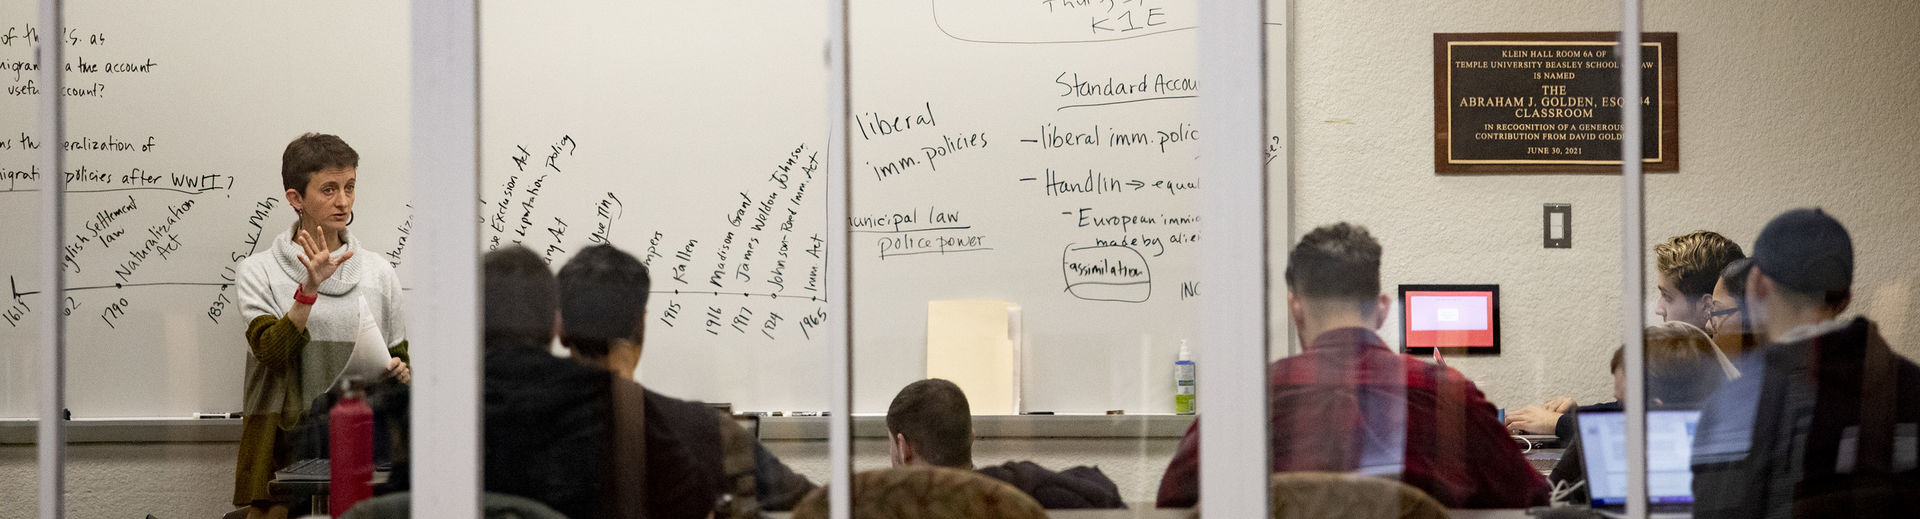 of th U.S. as
migran a true account
usefu ccount?
ns th eralization of
migrati policies after WWII?
nglish Settlement
law
Naturalization
Act
U.S. v.
aturaliz
ese Exclusion Act
portation policy
Act
ompers
Kallen
Madison Grant
James Weldon Johnson
Johnson-Reed Imm. Act
Imm Act
62
1790
1837
1915
1916
1917
1924
1965
liberal
imm. policies
municipal law
police power
K1E
Standard Accou
- liberal imm. polic
- Handlin → equal
- European immig
made by alie
assimilation
INC
KLEIN HALL ROOM 6A OF
TEMPLE UNIVERSITY BEASLEY SCHOOL O LAW
IS NAMED
THE
ABRAHAM J. GOLDEN, ESQ 44
CLASSROOM
IN RECOGNITION OF A GENEROUS
CONTRIBUTION FROM DAVID GOLD
JUNE 30, 2021